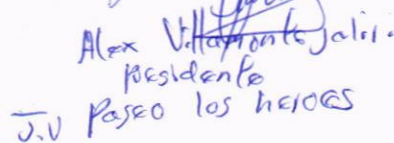 Alex Villamonte Jaliri.
presidente
J.V Paseo los heroes